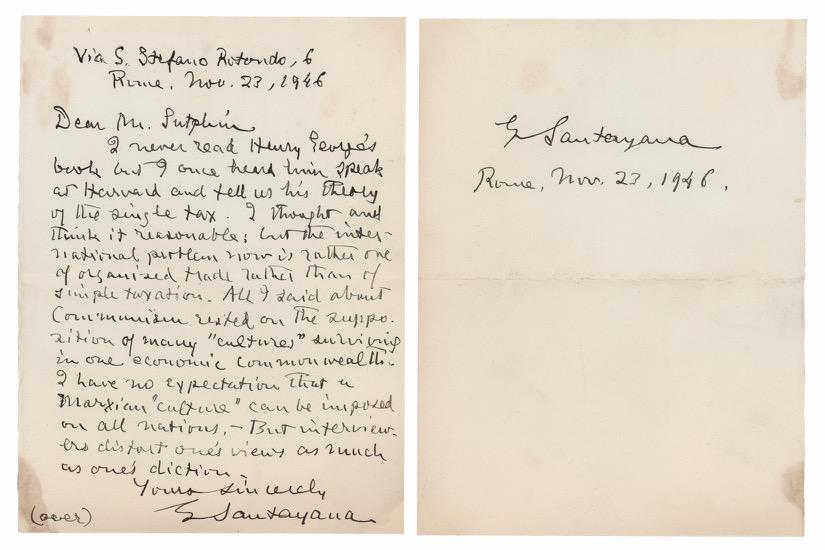 Via S. Stefano Rotondo, 6
Rome, Nov. 23, 1946
Dear Mr. Sutphin
I never read Henry George's
book but I once heard him speak
at Harvard and tell us his theory
of the single tax. I thought and
think it reasonable; but the inter-
national problem now is rather one
of organised trade rather than of
simple taxation. All I said about
Communism rested on the suppo-
sition of many "cultures" surviving
in one economic commonwealth.
I have no expectation that a
Marxian "culture" can be imposed
on all nations. – But interview-
ers distort one's views as much
as one's diction.
Yours sincerely
G Santayana
(over)
G Santayana
Rome, Nov. 23, 1946.